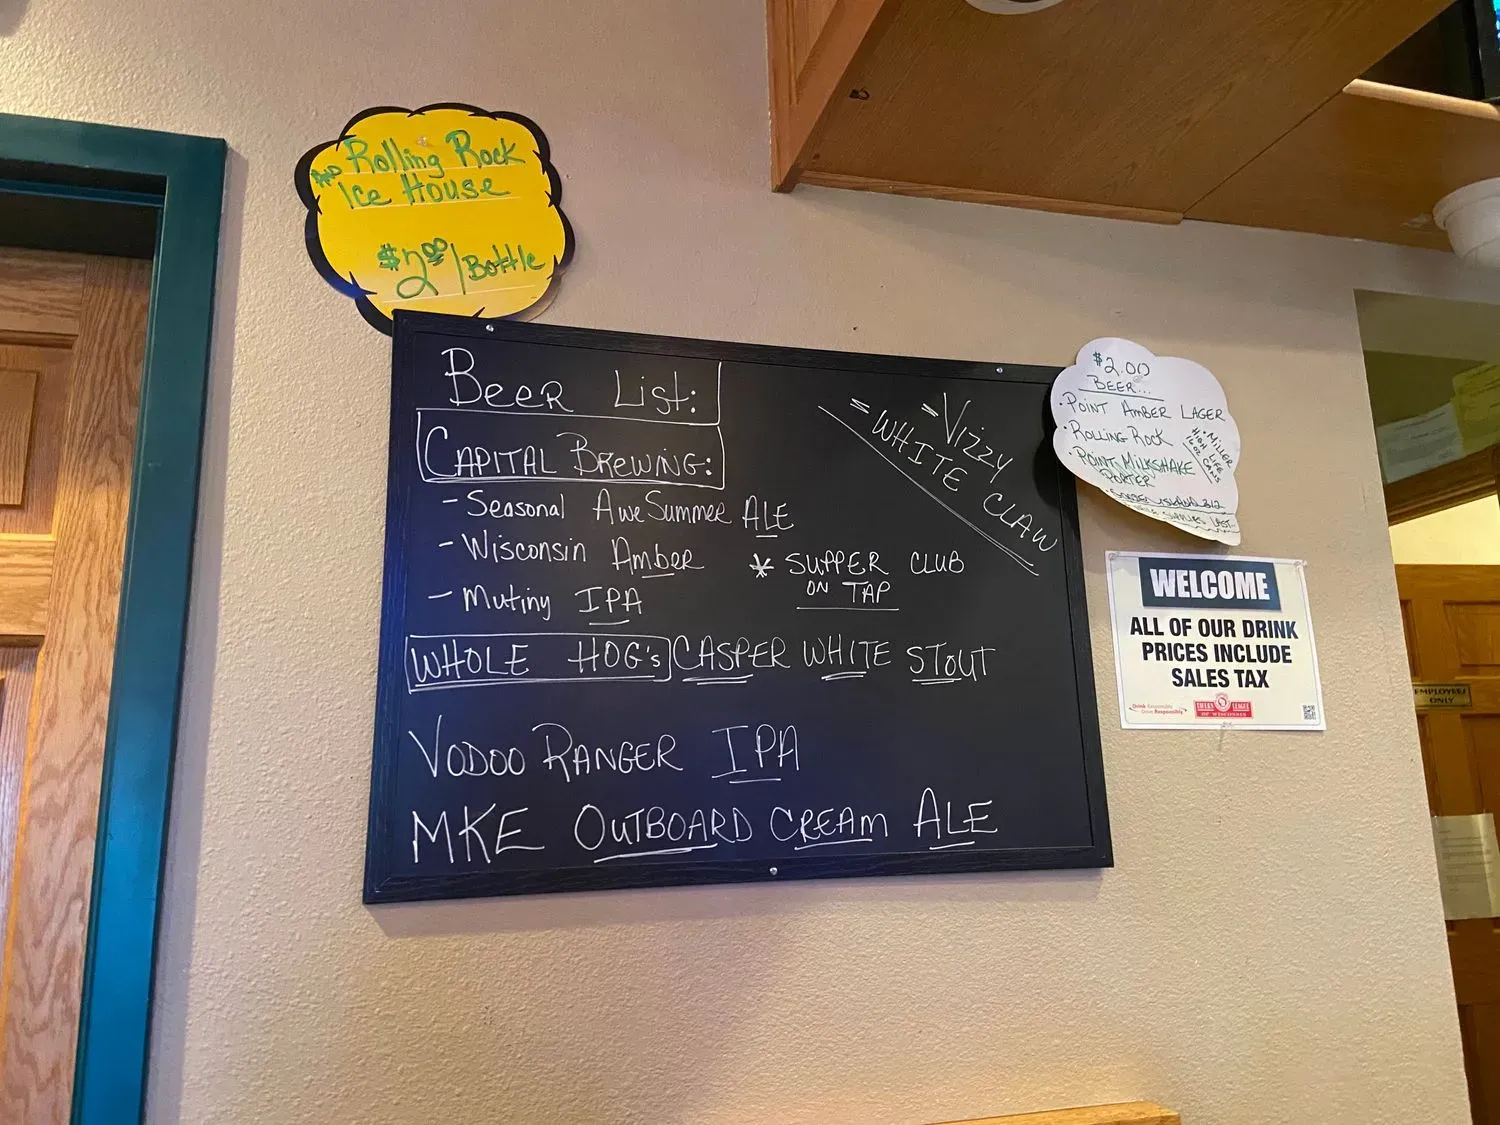 Rolling Rock
Ice House
$2.00/Bottle
Beer List:
Capital Brewing:
- Seasonal Awe Summer ALE
- Wisconsin Amber
- Mutiny IPA
* SUPPER CLUB
ON TAP
- Vizzy
- WHITE CLAW
WHOLE HOG's CASPER WHITE STOUT
VODOO RANGER IPA
MKE OUTBOARD CREAM ALE
$2.00
BEER...
· POINT AMBER LAGER
· ROLLING ROCK
· POINT MILKSHAKE
PORTER
· MILLER
HIGH LIFE
16 OZ CANS
LAST
WELCOME
ALL OF OUR DRINK
PRICES INCLUDE
SALES TAX
Drink Responsibly
Drive Responsibly
TAVERN LEAGUE
OF WISCONSIN
EMPLOYEES
ONLY